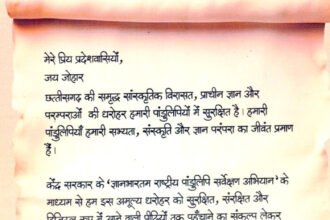 मेरे प्रिय प्रदेशवासियों,
जय जोहार
छत्तीसगढ़ की समृद्ध सांस्कृतिक विरासत, प्राचीन ज्ञान और
परम्पराओं की धरोहर हमारी पांडुलिपियों में सुरक्षित है। हमारी
पांडुलिपियाँ हमारी सभ्यता, संस्कृति और ज्ञान परंपरा का जीवंत प्रमाण
हैं।
केंद्र सरकार के 'ज्ञानभारतम राष्ट्रीय पांडुलिपि सर्वेक्षण अभियान' के
माध्यम से हम इस अमूल्य धरोहर को सुरक्षित, संरक्षित और
में आने वाली पीढ़ियों तक पहुँचाने का संकल्प लेकर